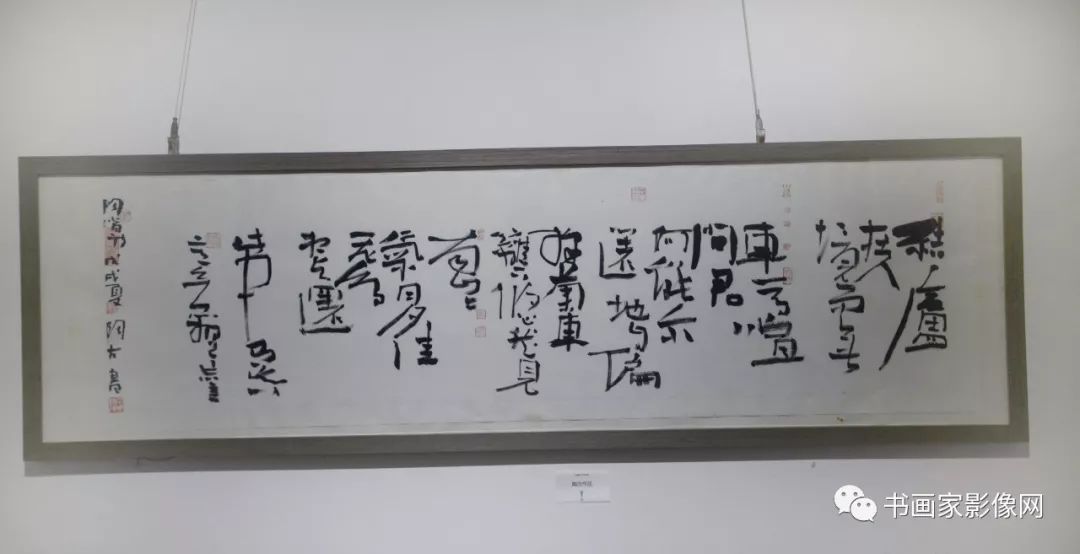 結廬
在人
境而無
車馬喧
問君
何能尔
遠地自偏
采菊東
籬下悠然見
南山
氣日夕佳
飛鳥
相與還
此中有真
意欲辨已忘言
戊戌夏
书画家影像网